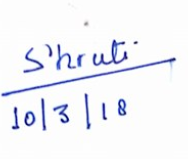 Shruti
10/3/18